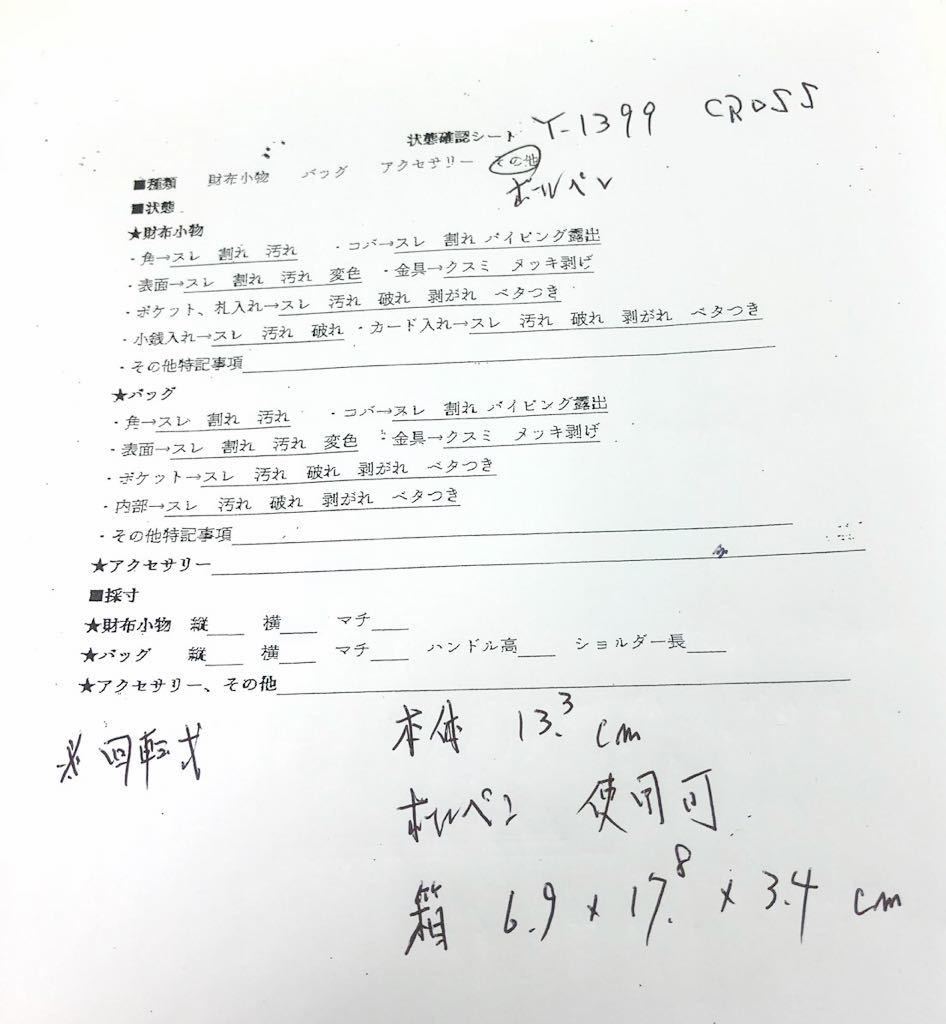 状態確認シート Y-1399 CROSS
■種類 財布小物 バッグ アクセサリー その他
ボールペン
■状態
★財布小物
・角→スレ 割れ 汚れ ・コバ→スレ 割れ パイピング露出
・表面→スレ 割れ 汚れ 変色 ・金具→クスミ メッキ剥げ
・ポケット、札入れ→スレ 汚れ 破れ 剥がれ ベタつき
・小銭入れ→スレ 汚れ 破れ ・カード入れ→スレ 汚れ 破れ 剥がれ ベタつき
・その他特記事項
★バッグ
・角→スレ 割れ 汚れ ・コバ→スレ 割れ パイピング露出
・表面→スレ 割れ 汚れ 変色 ・金具→クスミ メッキ剥げ
・ポケット→スレ 汚れ 破れ 剥がれ ベタつき
・内部→スレ 汚れ 破れ 剥がれ ベタつき
・その他特記事項
★アクセサリー
■採寸
★財布小物 縦 横 マチ
★バッグ 縦 横 マチ ハンドル高 ショルダー長
★アクセサリー、その他
※回転式 本体 13.3 cm
ボールペン 使用可
箱 6.9 x 17.8 x 3.4 cm